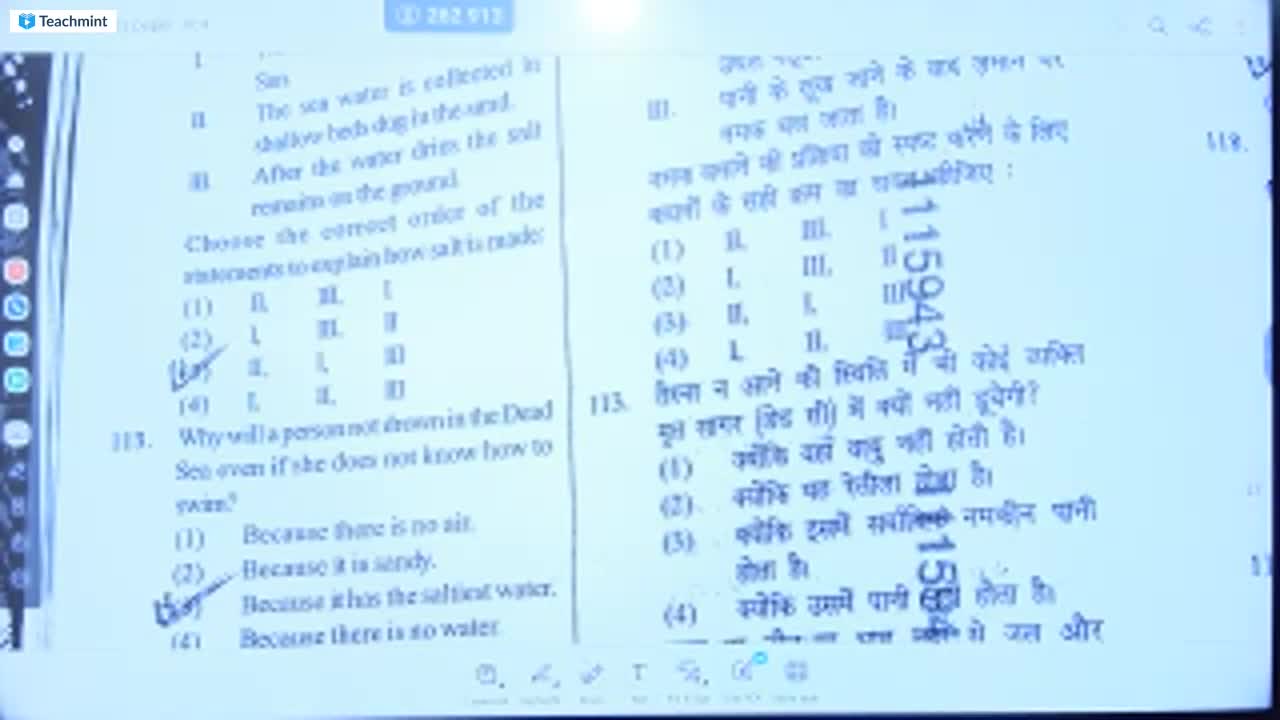 Teachmint
282 913
I
Sun
II The sea water is collected in
shallow beds dug in the sand.
III After the water dries the salt
remains on the ground.
Choose the correct order of the
statements to explain how salt is made:
(1) II, III, I
(2) I, III, II
II, I, III
(4) I, II, III
113. Why will a person not drown in the Dead
Sea even if she does not know how to
swim?
(1) Because there is no air.
(2) Because it is sandy.
Because it has the saltiest water.
(4) Because there is no water
III. पानी के सूख जाने के बाद ज़मीन पर
नमक बच जाता है।
नमक बनाने की प्रक्रिया को स्पष्ट करने के लिए
कथनों के सही क्रम का चयन कीजिए :
(1) II, III, I
(2) I, III, II
(3) II, I, III
(4) I, II, III
113. तैरना न आने की स्थिति में भी कोई व्यक्ति
मृत सागर (डेड सी) में क्यों नहीं डूबेगी?
(1) क्योंकि वहाँ वायु नहीं होती है।
(2) क्योंकि यह रेतीला होता है।
(3) क्योंकि इसमें सर्वाधिक नमकीन पानी
होता है।
(4) क्योंकि उसमें पानी होता है।
से जल और
1115943
118.
T